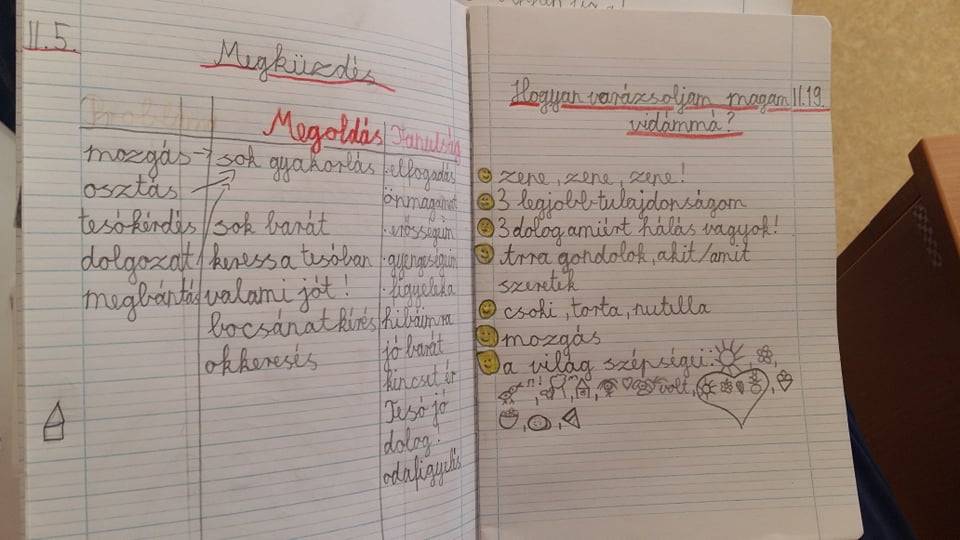 11.5.
Megküzdés
Probléma
Megoldás
Tanulság
mozgás
osztás
tesókérdés
dolgozat
megbántás
sok gyakorlás
sok barát
keress a tesóban
valami jót!
bocsánatkérés
okkeresés
elfogadás
önmagamat
erősségeim
gyengeségeim
figyelek a
hibáimra
jó barát
kincset ér
Tesó jó
dolog!
odafigyelés
Hogyan varázsoljam magam 11.19.
vidámmá?
zene, zene, zene!
3 legjobb tulajdonságom
3 dolog amiért hálás vagyok!
Arra gondolok, akit/amit
szeretek
csoki, torta, nutella
mozgás
a világ szépségei:
volt,